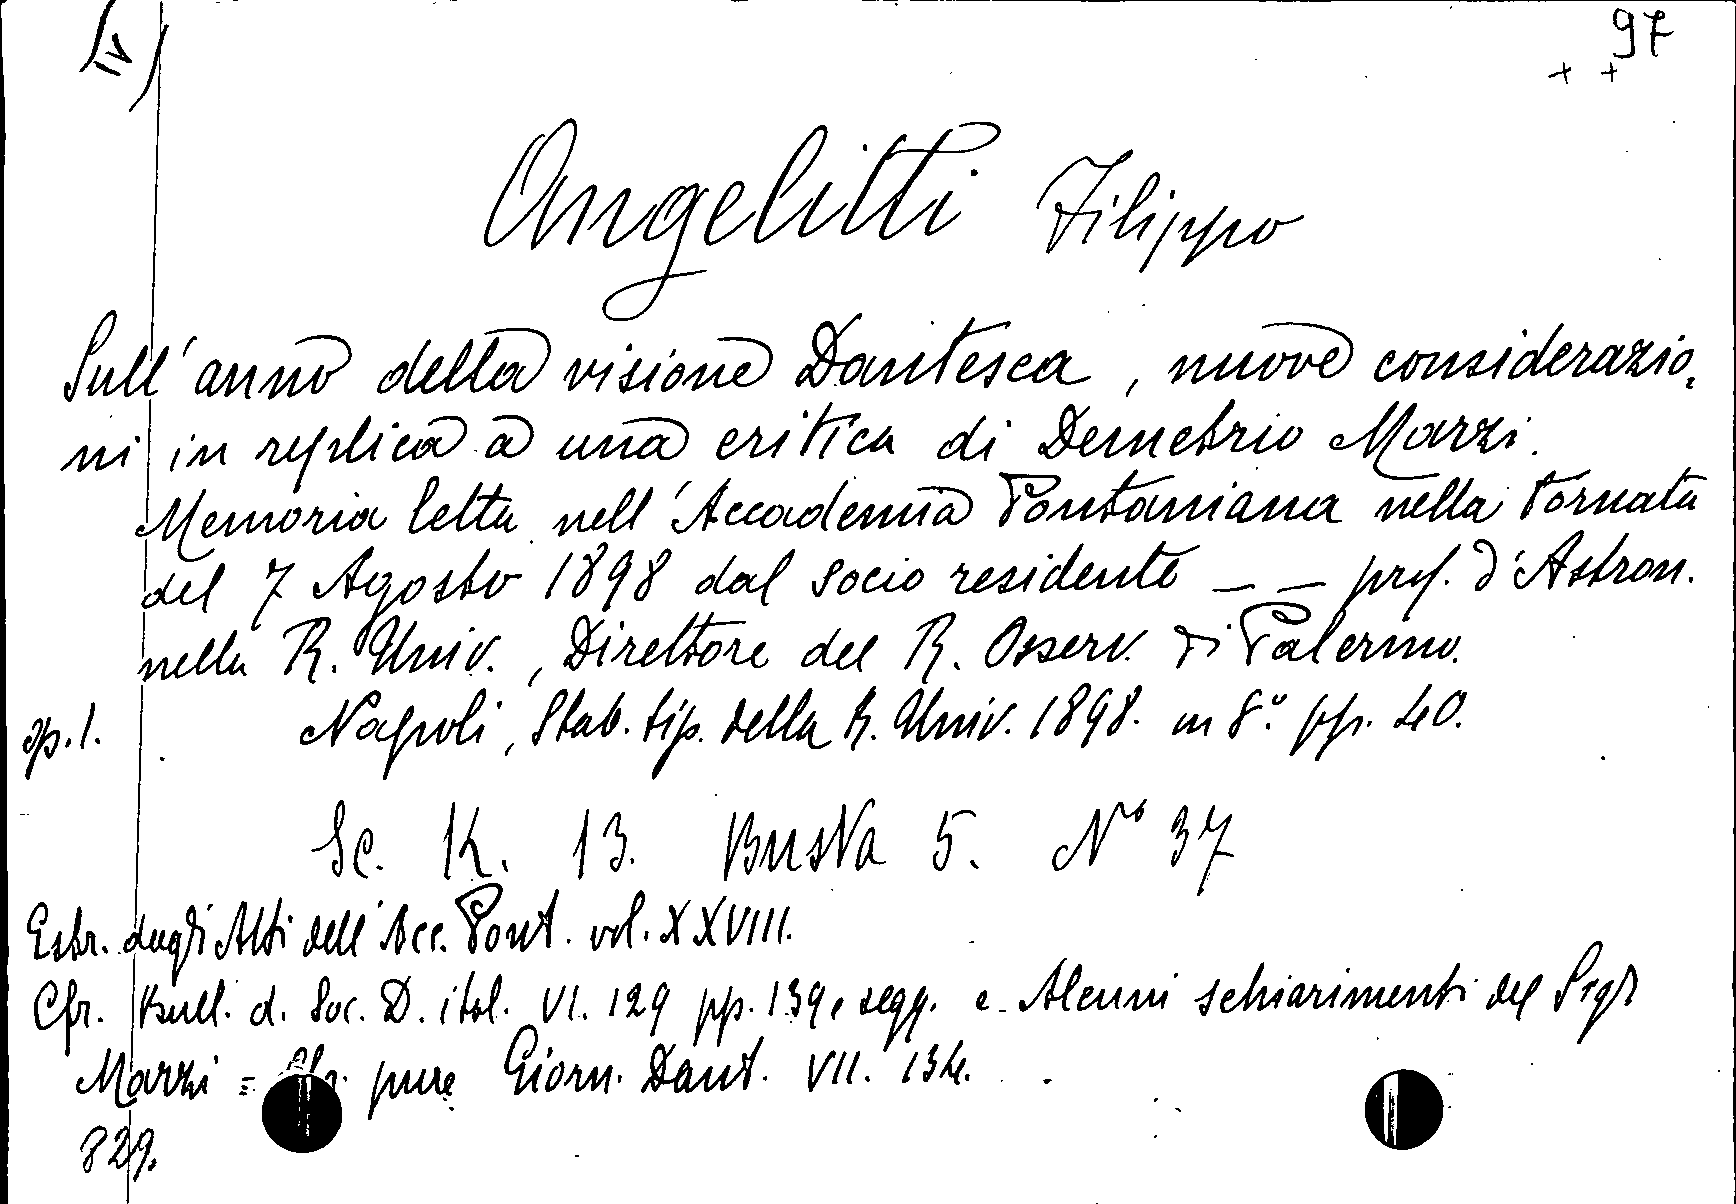 IV
97
+ +
Angelitti Filippo
Sull'anno della visione Dantesca, nuove considerazio,
ni in replica a una critica di Demetrio Marzi.
Memoria letta nell'Accademia Pontaniana nella tornata
del 7 Agosto 1898 dal socio residente _ _ prof. d'Astron.
nella R. Univ., Direttore del R. Osserv. di Palermo.
op. 1. Napoli, Stab. tip. della R. Univ. 1898. in 8.º pp. 40.
Sc. K. 13. Busta 5. Nº 37
Estr. dagli Atti dell'Acc. Pont. vol. XXVIII.
Cfr. Bull. d. Soc. D. ital. VI. 129 pp. 139 e segg. e Alcuni schiarimenti del Sigr
Marzi = Cfr. pure Giorn. Dant. VII. 134.
829.